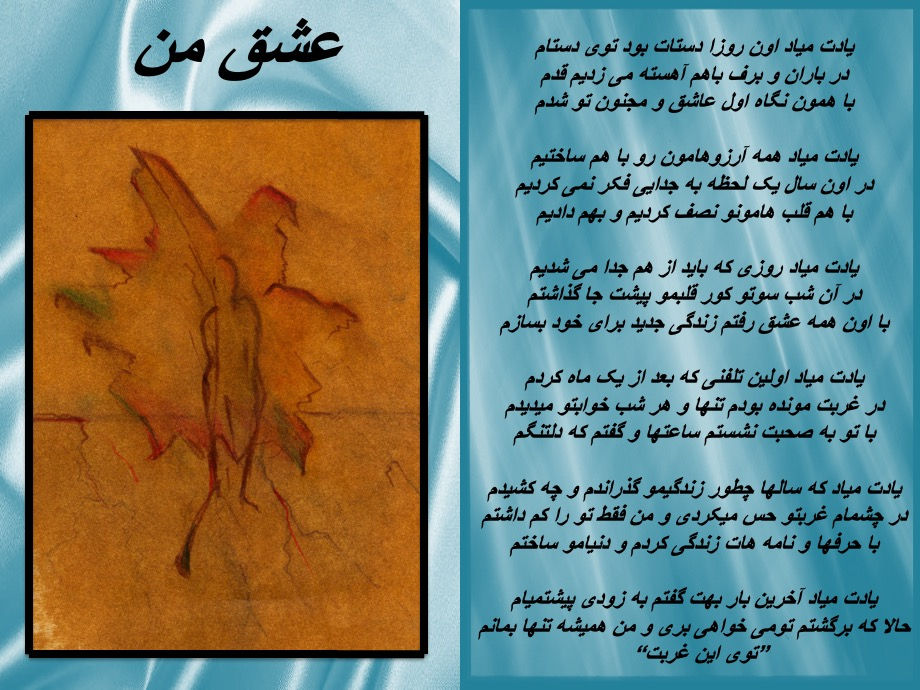 عشق من
یادت میاد اون روزا دستات بود توی دستام
در باران و برف باهم آهسته می زدیم قدم
با همون نگاه اول عاشق و مجنون تو شدم
یادت میاد همه آرزوهامون رو با هم ساختیم
در اون سال یک لحظه به جدایی فکر نمی کردیم
با هم قلب هامونو نصف کردیم و بهم دادیم
یادت میاد روزی که باید از هم جدا می شدیم
در آن شب سوتو کور قلبمو پیشت جا گذاشتم
با اون همه عشق رفتم زندگی جدید برای خود بسازم
یادت میاد اولین تلفنی که بعد از یک ماه کردم
در غربت مونده بودم تنها و هر شب خوابتو میدیدم
با تو به صحبت نشستم ساعتها و گفتم که دلتنگم
یادت میاد که سالها چطور زندگیمو گذراندم و چه کشیدم
در چشمام غربتو حس میکردی و من فقط تو را کم داشتم
با حرفها و نامه هات زندگی کردم و دنیامو ساختم
یادت میاد آخرین بار بهت گفتم به زودی پیشتمیام
حالا که برگشتم تومی خواهی بری و من همیشه تنها بمانم
”توی این غربت“